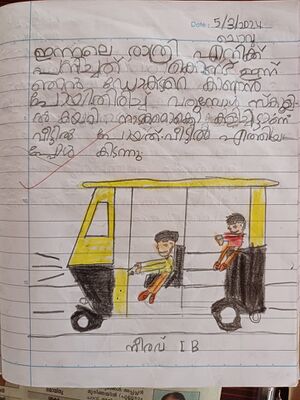 Date: 5/3/2024
ചൊവ്വ
ഇന്നലെ രാത്രി എനിക്ക്
പനിച്ചത് കൊണ്ട് ഇന്ന്
ഞാൻ ഡോക്ടറെ കാണാൻ
പോയി തിരിച്ച് വരുമ്പോൾ സ്കൂളി
ൽ കയറി
വീട്ടിൽ പോയത്. വീട്ടിൽ എത്തിയ
പ്പോൾ കിടന്നു
നീരവ് I B